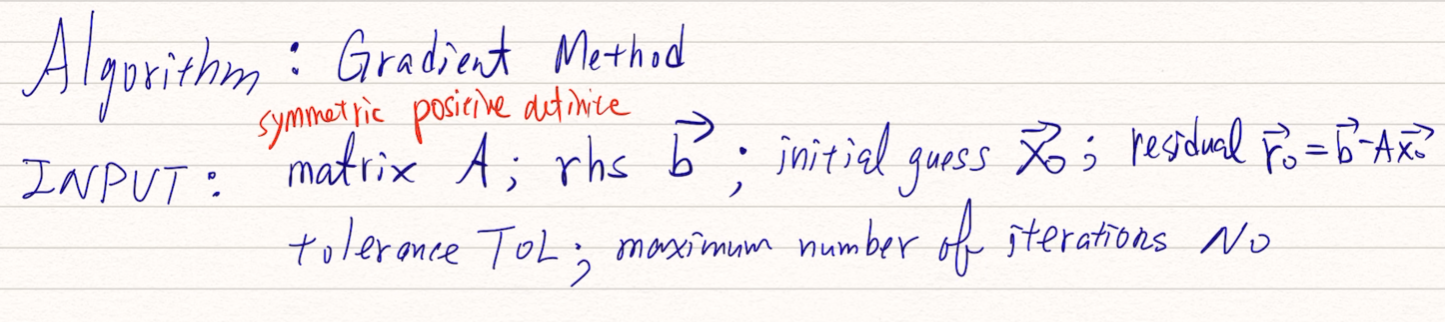 Algorithm : Gradient Method
symmetric positive definite
INPUT : matrix A; rhs b⃗ ; initial guess x⃗₀ ; residual r⃗₀ = b⃗ - Ax⃗₀
tolerance TOL ; maximum number of iterations No